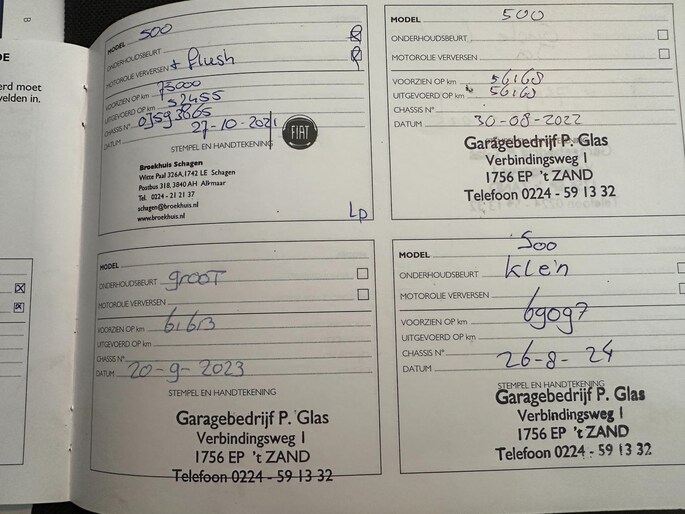 DE
B
erd moet
velden in.
MODEL 500
ONDERHOUDSBEURT
MOTOROLIE VERVERSEN + flush
VOORZIEN OP km 75000
UITGEVOERD OP km 52455
CHASSIS N°
DATUM 27-10-2021
STEMPEL EN HANDTEKENING
FIAT
Broekhuis Schagen
Witte Paal 326A,1742 LE Schagen
Postbus 318, 3840 AH Alkmaar
Tel. 0224 - 21 21 37
schagen@broekhuis.nl
www.broekhuis.nl
LP
MODEL 500
ONDERHOUDSBEURT
MOTOROLIE VERVERSEN
VOORZIEN OP km 56168
UITGEVOERD OP km 56168
CHASSIS N°
DATUM 30-08-2022
Garagebedrijf P. Glas
Verbindingsweg 1
1756 EP 't ZAND
Telefoon 0224 - 59 13 32
MODEL
ONDERHOUDSBEURT groot
MOTOROLIE VERVERSEN
VOORZIEN OP km 61613
UITGEVOERD OP km
CHASSIS N°
DATUM 20-9-2023
STEMPEL EN HANDTEKENING
Garagebedrijf P. Glas
Verbindingsweg 1
1756 EP 't ZAND
Telefoon 0224 - 59 13 32
MODEL 500
ONDERHOUDSBEURT klein
MOTOROLIE VERVERSEN
VOORZIEN OP km 69097
UITGEVOERD OP km
CHASSIS N°
DATUM 26-8-24
STEMPEL EN HANDTEKENING
Garagebedrijf P. Glas
Verbindingsweg 1
1756 EP 't ZAND
Telefoon 0224 - 59 13 32